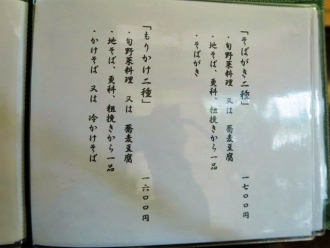 「そばがき二種」
・旬野菜料理 又は 蕎麦豆腐
・地そば、更科、粗挽きから一品
・そばがき
一七〇〇円
「もりかけ二種」
・旬野菜料理 又は 蕎麦豆腐
・地そば、更科、粗挽きから一品
・かけそば 又は 冷かけそば
一六〇〇円